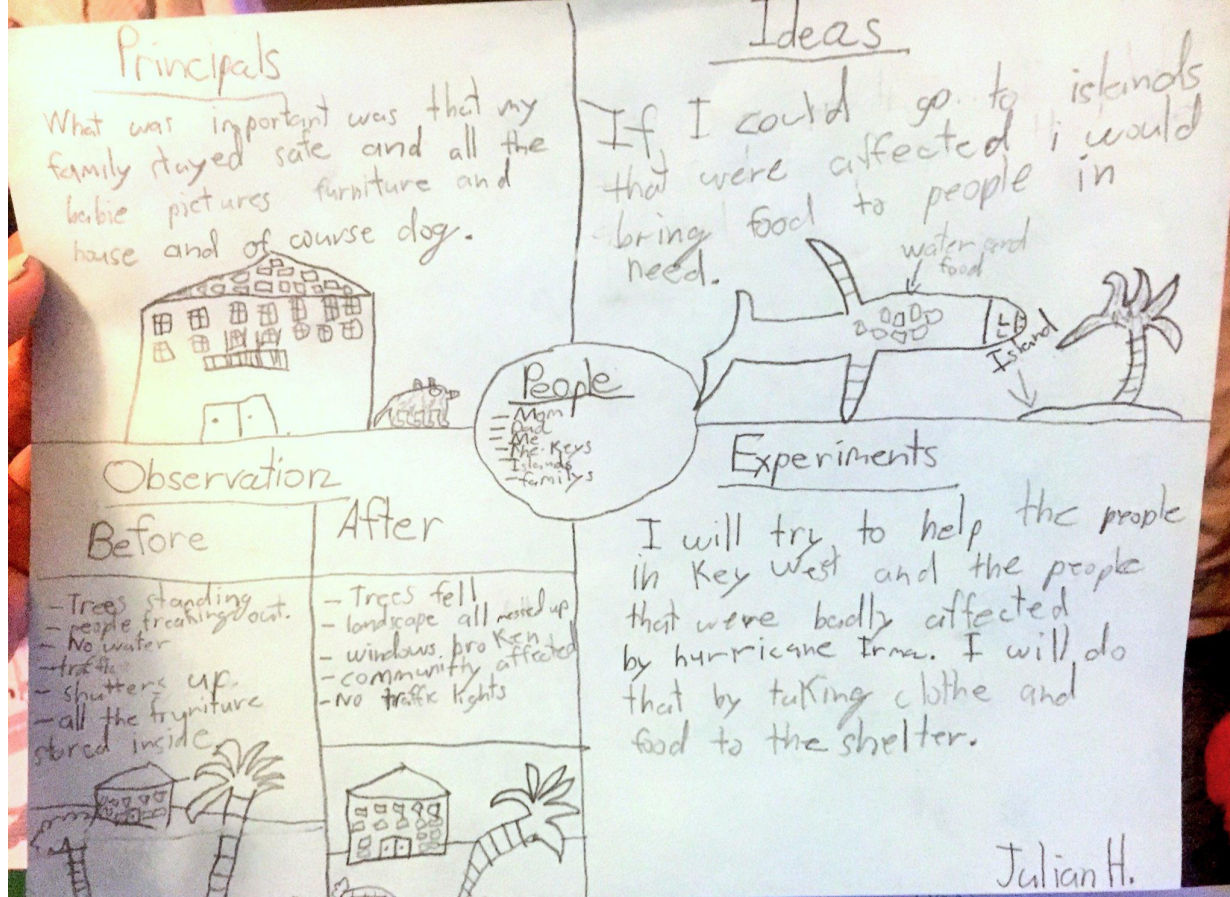 Principals
What was important was that my
family stayed safe and all the
babie pictures furniture and
house and of course dog.
Ideas
If I could go to islands
that were affected i would
bring food to people in
need.
water and
food
Island
People
- Mom
- Dad
- Me
- the Keys
- Islands
- familys
Observation
Before
- Trees standing
- people freaking out.
- No water
- traffic
- shutters up.
- all the fryniture
stored inside
After
- Trees fell
- landscape all messed up
- windows broken
- community affected
- No traffic lights
Experiments
I will try to help the people
in Key West and the people
that were badly affected
by hurricane Irma. I will do
that by taking clothe and
food to the shelter.
Julian H.